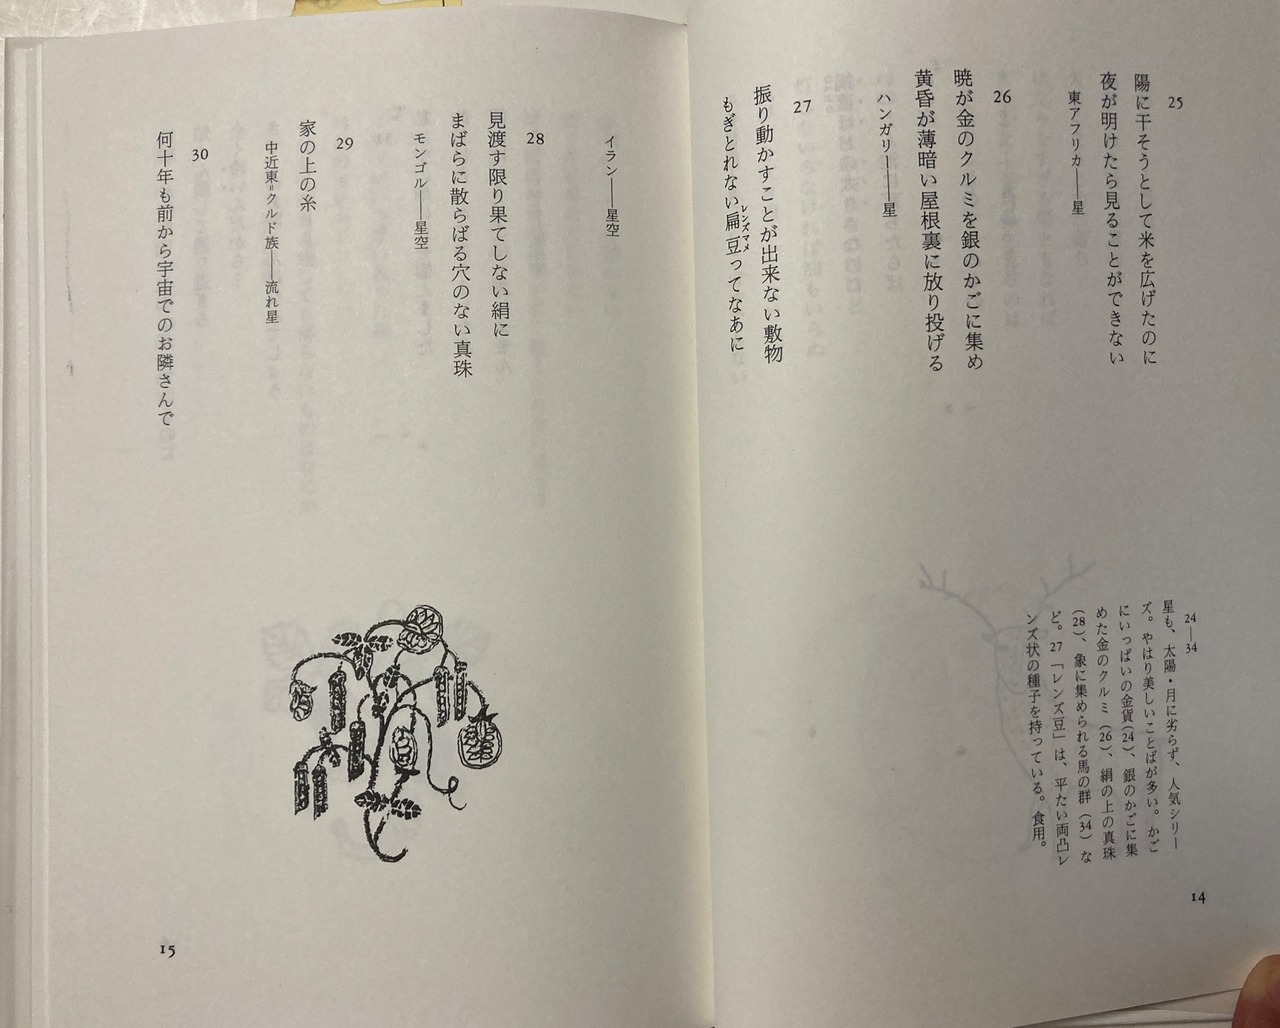 25
陽に干そうとして米を広げたのに
夜が明けたら見ることができない
東アフリカ——星
26
暁が金のクルミを銀のかごに集め
黄昏が薄暗い屋根裏に放り投げる
ハンガリー——星
27
振り動かすことが出来ない敷物
もぎとれない扁豆ってなあに
レンズマメ
24—34
星も、太陽・月に劣らず、人気シリー
ズ。やはり美しいことばが多い。かご
にいっぱいの金貨(24)、銀のかごに集
めた金のクルミ(26)、絹の上の真珠
(28)、象に集められる馬の群(34)な
ど。27「レンズ豆」は、平たい両凸レ
ンズ状の種子を持っている。食用。
14
イラン——星空
28
見渡す限り果てしない絹に
まばらに散らばる穴のない真珠
モンゴル——星空
29
家の上の糸
中近東=クルド族——流れ星
30
何十年も前から宇宙でのお隣さんで
15